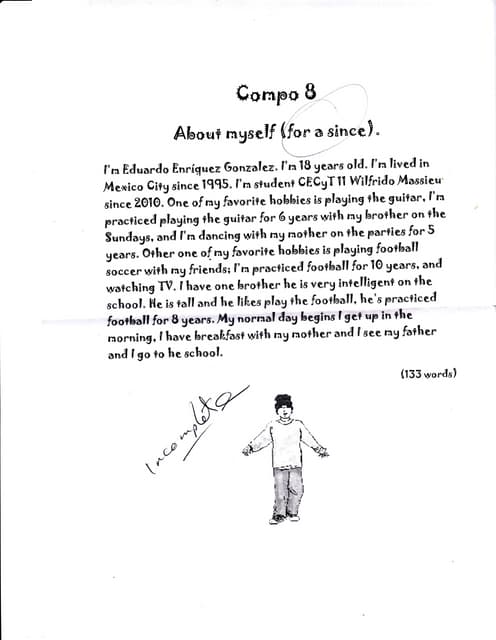 Compo 8
About myself (for a since).
I'm Eduardo Enríquez Gonzalez. I'm 18 years old. I'm lived in
Mexico City since 1995. I'm student CECyT 11 Wilfrido Massieu
since 2010. One of my favorite hobbies is playing the guitar, I'm
practiced playing the guitar for 6 years with my brother on the
Sundays, and I'm dancing with my mother on the parties for 5
years. Other one of my favorite hobbies is playing football
soccer with my friends; I'm practiced football for 10 years, and
watching TV. I have one brother he is very intelligent on the
school. He is tall and he likes play the football, he's practiced
football for 8 years. My normal day begins I get up in the
morning, I have breakfast with my mother and I see my father
and I go to he school.
(133 words)
Incomplete